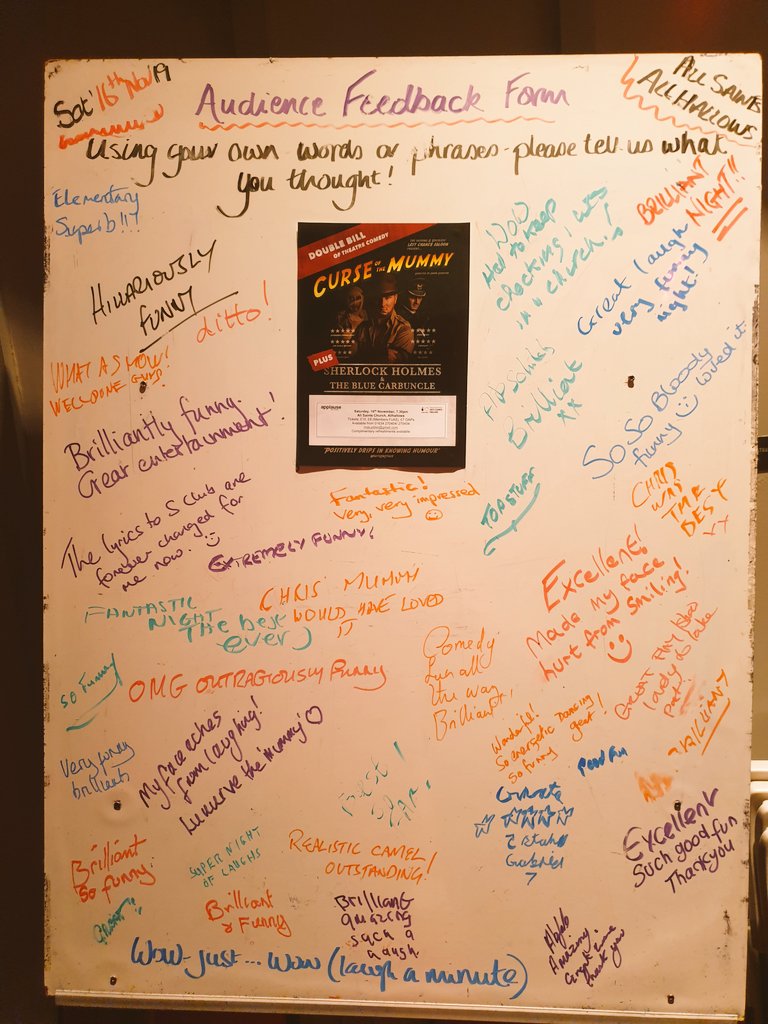 Sat 16th Nov 19
Audience Feedback Form
ALL SAINTS
ALL HALLOWS
Using your own words or phrases - please tell us what
you thought!
Elementary
Superb!!!
HILARIOUSLY
FUNNY
ditto!
WHAT A SHOW!
WELL DONE GUYS
Brilliantly funny.
Great entertainment!
The lyrics to S Club are
forever changed for
me now.
DOUBLE BILL
OF THEATRE COMEDY
LAST CHANCE SALOON
CURSE OF THE MUMMY
PLUS
SHERLOCK HOLMES
&
THE BLUE CARBUNCLE
applause
Saturday, 16th November, 7.30pm
All Saints Church, Allhallows
Complimentary refreshments available
'POSITIVELY DRIPS IN KNOWING HUMOUR'
WOW
Had to keep
checking I was
in a church!
BRILLIANT
NIGHT!!
Great laugh
very funny
night!
Absolutely
Brilliant
xx
So So Bloody
funny loved it
TOP STUFF
CHRIS
WAS
THE
BEST
Fantastic!
very, very impressed
EXTREMELY FUNNY!
FANTASTIC
NIGHT
The best
ever
CHRIS' MUMMY
WOULD HAVE LOVED
IT
Excellent!
Made my face
hurt from smiling!
so funny
OMG OUTRAGIOUSLY funny
Comedy
fun all
the way
Brilliant,
My face aches
from laughing!
Very funny
brilliant
Wonderful!
So energetic Dancing
so funny great!
Good fun
BRILLIANT
Best
so far!
Brilliant
so funny.
SUPER NIGHT
OF LAUGHS
REALISTIC CAMEL!
OUTSTANDING!
Gabriel
7
Excellent
Such good fun
Thank you
GREAT!!
Brilliant
& Funny
Brilliant
amazing
such a
laugh
Amazing.
Great time
thank you
Wow - just... wow (laugh a minute)